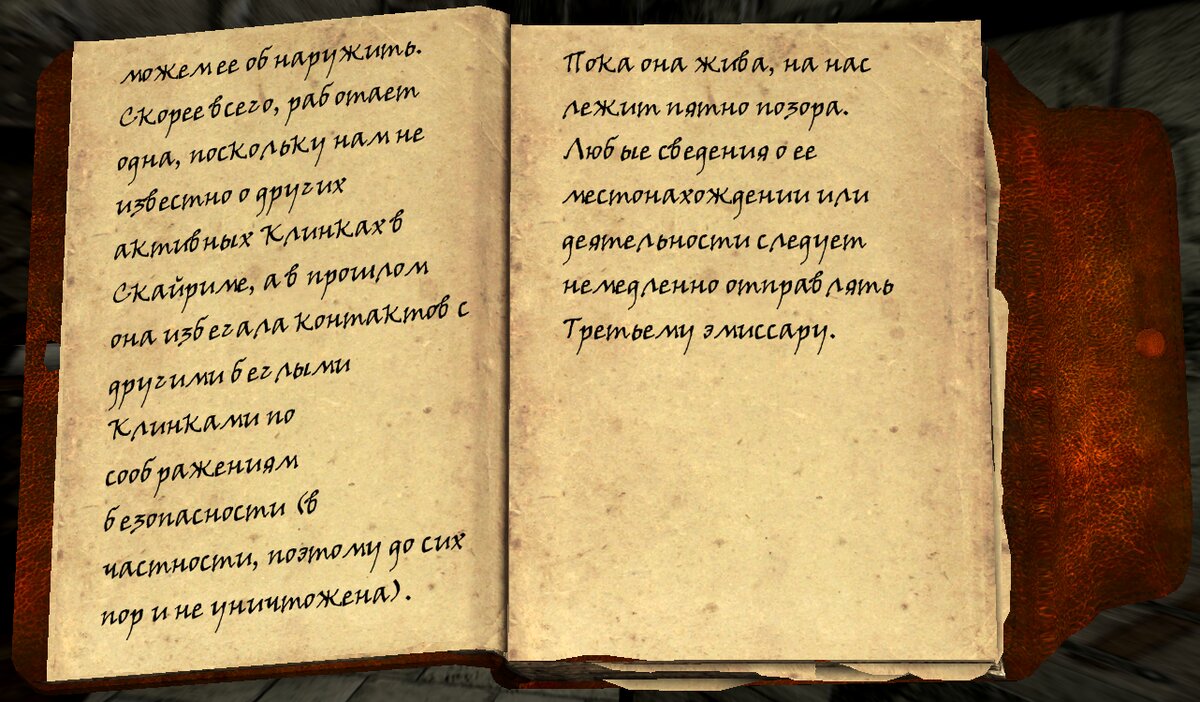 можем ее обнаружить.
Скорее всего, работает
одна, поскольку нам не
известно о других
активных Клинках в
Скайриме, а в прошлом
она избегала контактов с
другими беглыми
Клинками по
соображениям
безопасности (в
частности, поэтому до сих
пор и не уничтожена).
Пока она жива, на нас
лежит пятно позора.
Любые сведения о ее
местонахождении или
деятельности следует
немедленно отправлять
Третьему эмиссару.